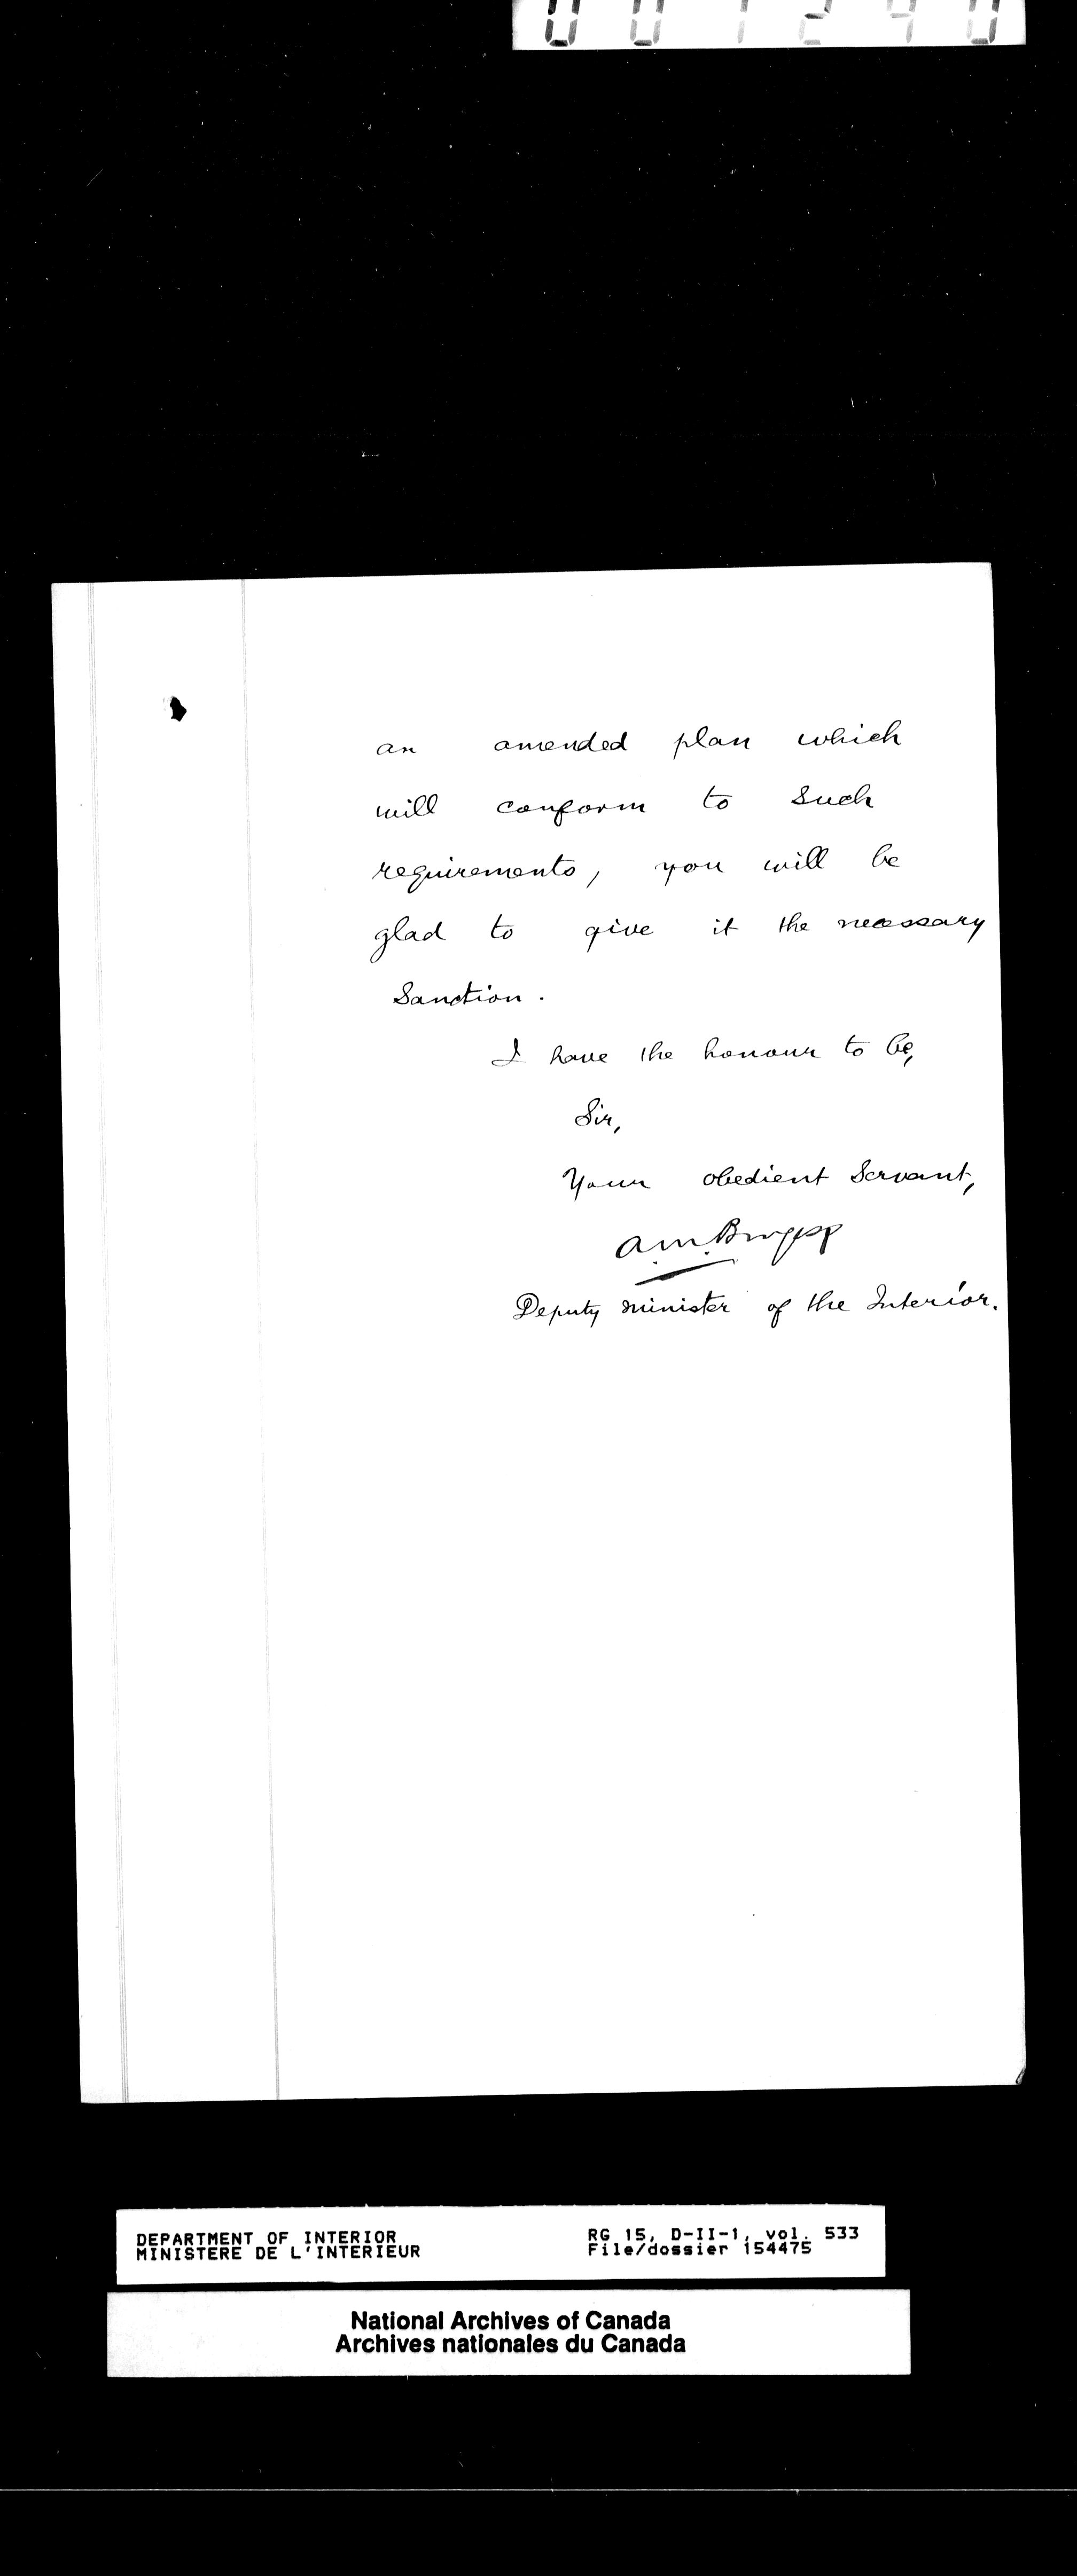 001240
an amended plan which
will conform to such
requirements, you will be
glad to give it the necessary
Sanction.
I have the honour to be,
Sir,
Your obedient Servant,
A. M. Burgess
Deputy Minister of the Interior.
DEPARTMENT OF INTERIOR
MINISTERE DE L'INTERIEUR
RG 15, D-II-1, vol. 533
File/dossier 154475
National Archives of Canada
Archives nationales du Canada